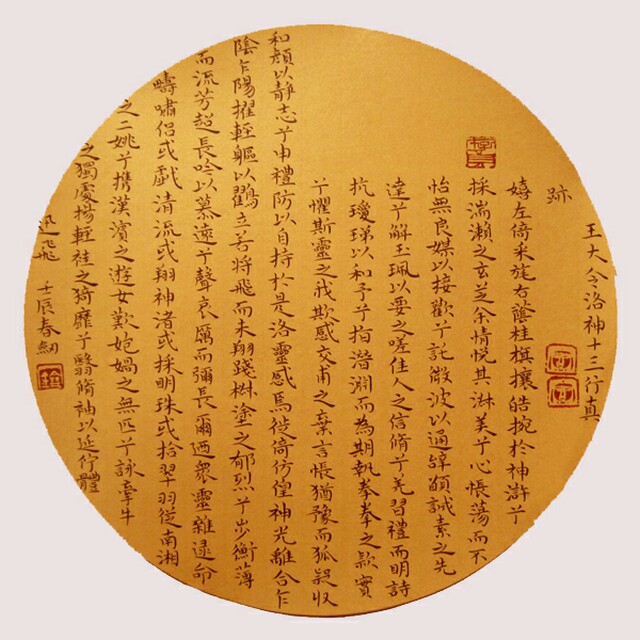 王大令洛神十三行真
跡
嬉左倚采旄右蔭桂旗攘皓捥於神滸兮
採湍瀨之玄芝余情悅其淑美兮心悵蕩而不
怡無良媒以接歡兮託微波以通辭願誠素之先
達兮解玉珮以要之嗟佳人之信脩兮羌習禮而明詩
抗瓊珶以和予兮指潛淵而為期執拳拳之款實
兮懼斯靈之我欺感交甫之棄言悵猶豫而狐疑收
和顏以靜志兮申禮防以自持於是洛靈感焉徙倚仿偟神光離合乍
陰乍陽擢輕軀以鶴立若將飛而未翔踐椒塗之郁烈兮步衡薄
而流芳超長吟以慕遠兮聲哀厲而彌長爾迺眾靈雜遝命
疇嘯侶或戲清流或翔神渚或採明珠或拾翠羽從南湘
之二姚兮攜漢濱之遊女歎匏媧之無匹兮詠牽牛
之獨處揚輕袿之猗靡兮翳脩袖以延佇體
迅飛 壬辰春